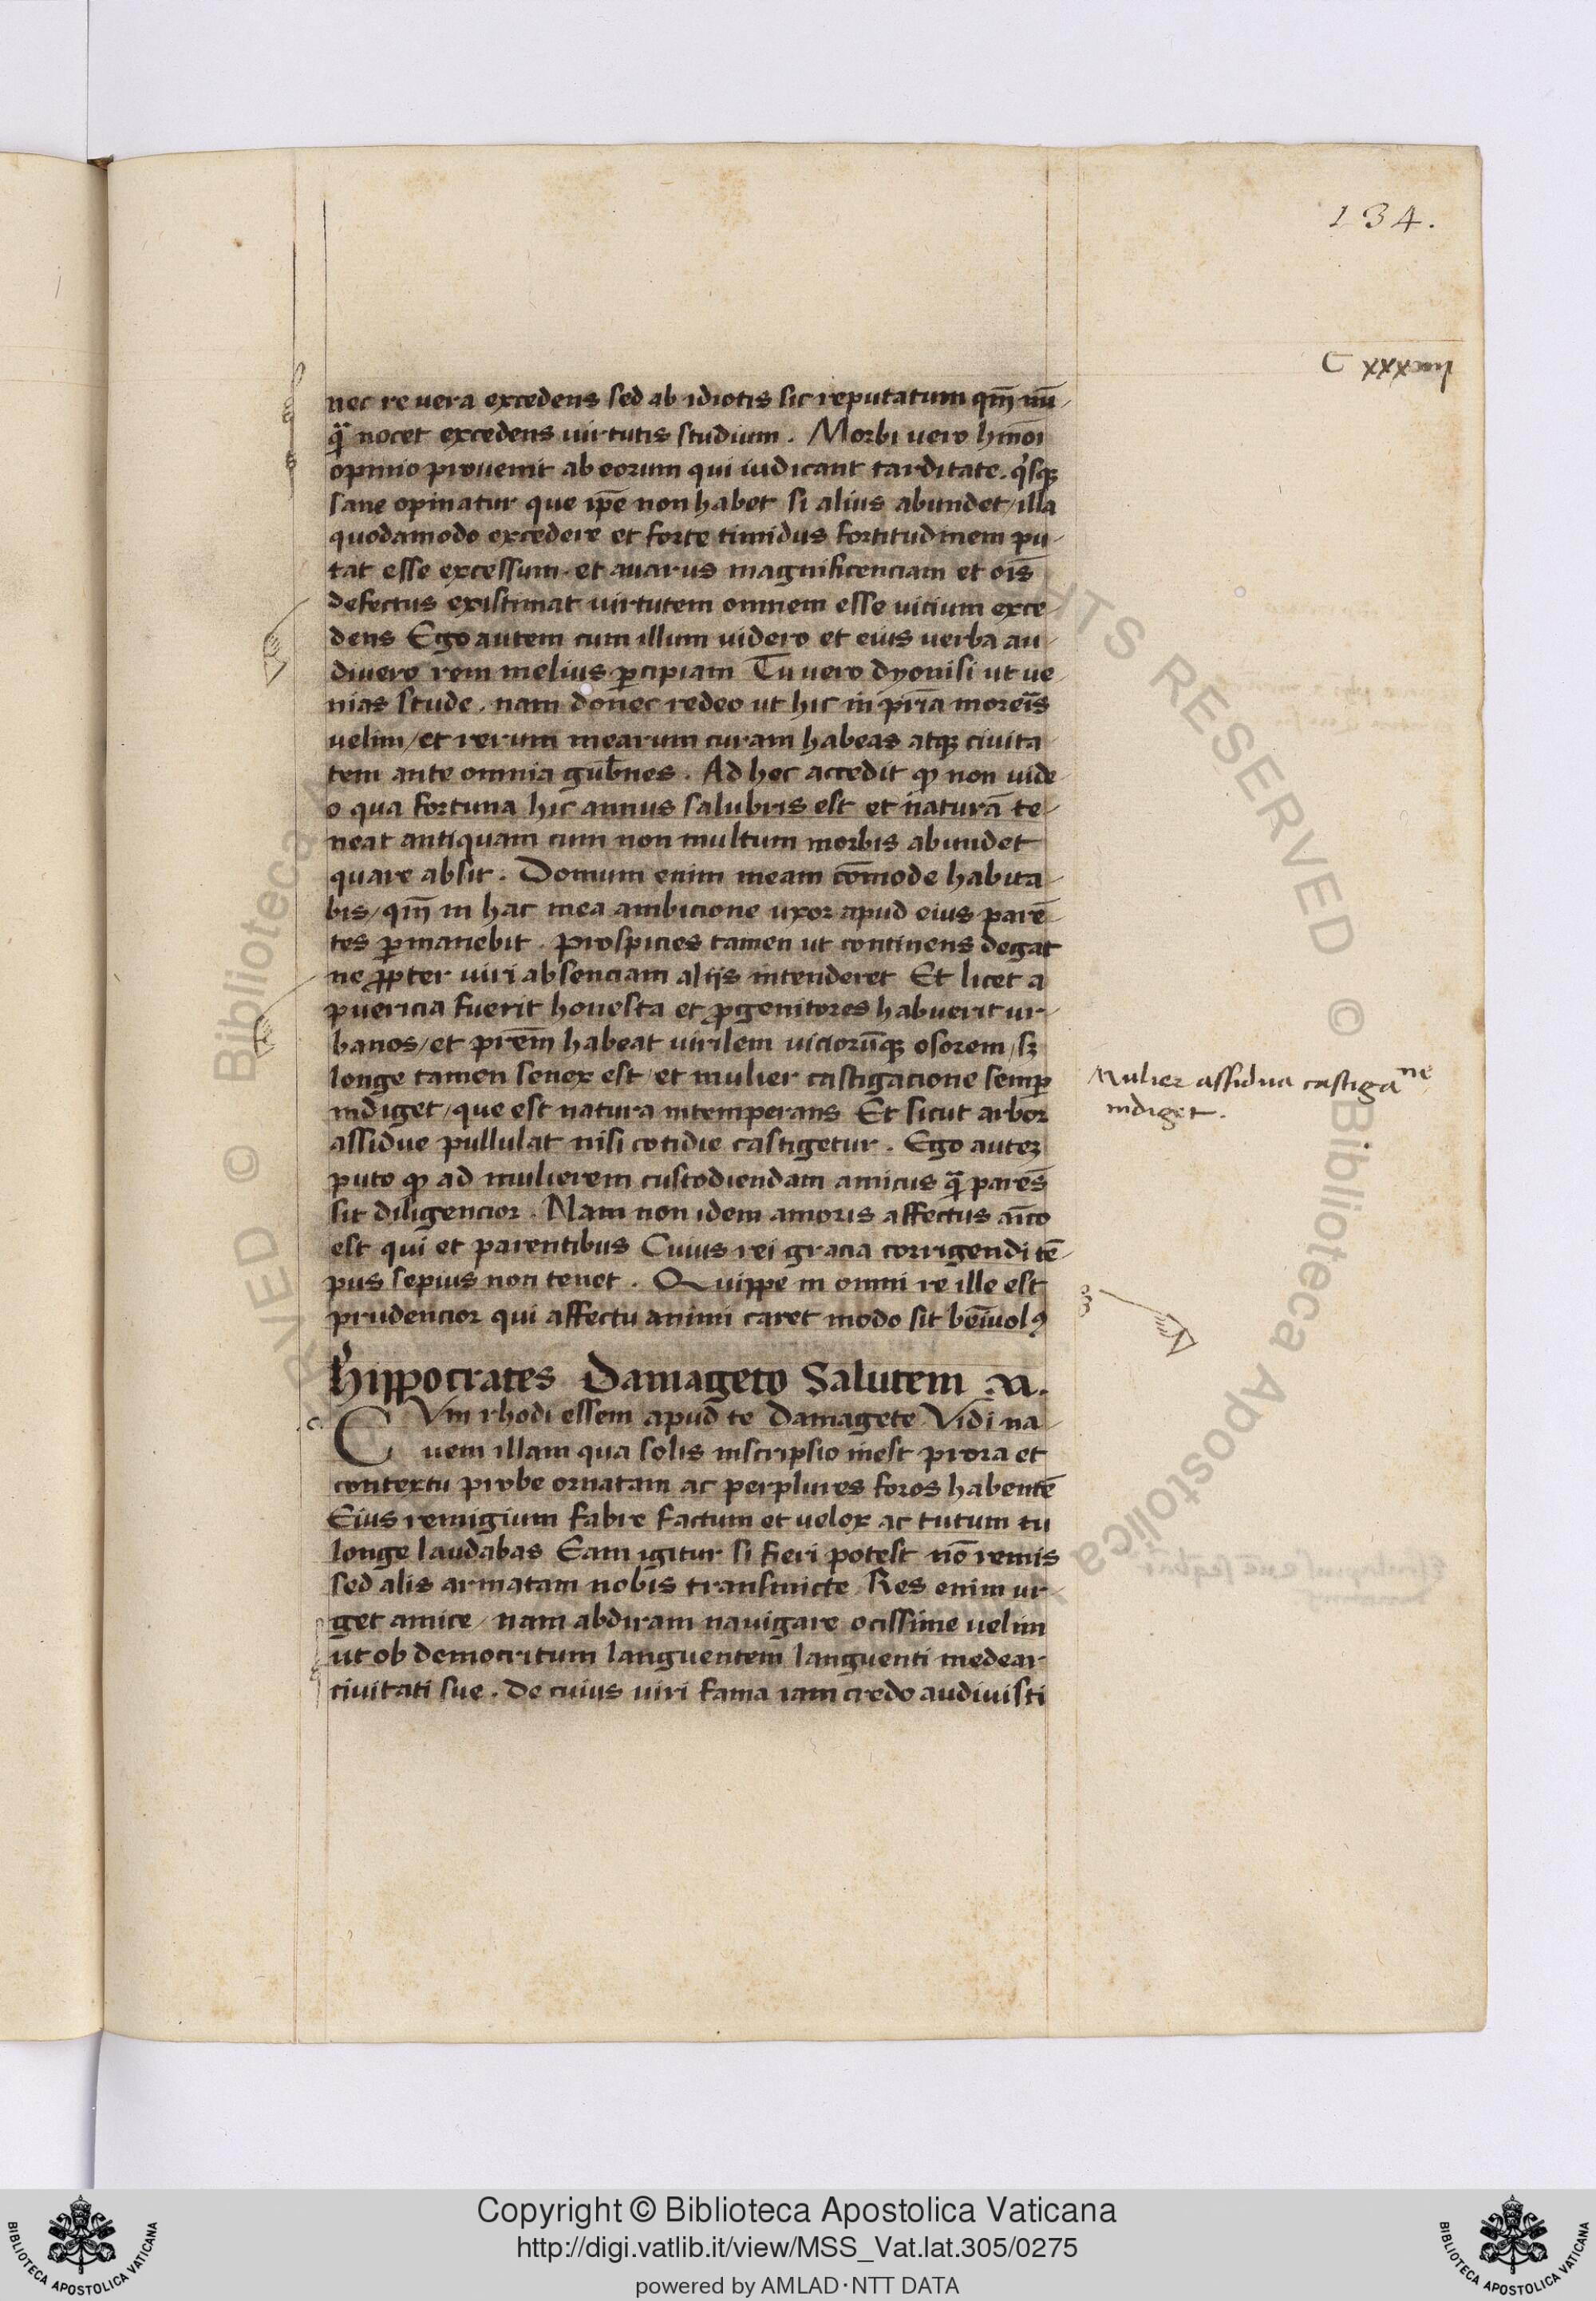 134.
C xxxiiij
nec re vera excedens sed ab idiotis sic reputatum qm̄ nū-
qᷓ nocet excedens uirtutis studium. Morbi uero hmōi
opinio prouenit ab eorum qui iudicant tarditate. qͥsqꝫ
sane opinatur que ip̄e non habet si alius abundet / illa
quodamodo excedere et forte timidus fortitudinem pu-
tat esse excessum. et auarus magnificenciam et oīs
defectus existimat uirtutem omnem esse uicium exce-
dens Ego autem cum illum uidero et eius uerba au-
diuero rem melius ꝑcipiam Tu uero dyonisi ut ue-
nias stude. nam donec redeo ut hic in pr̄ia moreīs
uelim / et rerum mearum curam habeas atqꝫ ciuita-
tem ante omnia gub̄nes. Ad hec accedit ꝙ non uide-
o qua fortuna hic annus salubris est et naturā te-
neat antiquam cum non multum morbis abundet
quare absit. Domum enim meam cōmode habita-
bis / qm̄ in hac mea ambicione uxor apud eius parē-
tes ꝑmanebit. Prospicies tamen ut continens degat
ne ꝓpter uiri absenciam alijs intenderet Et licet a
puericia fuerit honesta et ꝓgenitores habuerit ur-
banos / et prēm habeat uirilem uiciorūqꝫ osorem / sꝫ
longe tamen senex est / et mulier castigacione semꝑ
indiget / que est natura intemperans Et sicut arbor
assidue pullulat nisi cotidie castigetur. Ego auteꝫ
puto ꝙ ad mulierem custodiendam amicus qᷓ parēs
sit diligencior. Nam non idem amoris affectus aīco
est qui et parentibus Cuius rei gracia corrigendi tē-
pus sepius non tenet. Quippe in omni re ille est
prudencior qui affectu animi caret modo sit bēiuolꝰ
Mulier assidua castigaⁿᵉ
indiget.
hippocrates Damageto Salutem xi.
c. CVm rhodi essem apud te Damagete Vidi na-
uem illam qua solis inscripsio inest prora et
contextu probe ornatam ac perplures foros habentē
Eius remigium fabre factum et uelox ac tutum tu
longe laudabas Eam igitur si fieri potest nō remis
sed alis armatam nobis transmicte Res enim ur-
get amice / nam abdiram nauigare ocissime uelim
ut ob democritum languentem languenti medear
ciuitati sue. De cuius uiri fama iam credo audiuisti
RIGHTS RESERVED © Biblioteca Apostolica
Copyright © Biblioteca Apostolica Vaticana
http://digi.vatlib.it/view/MSS_Vat.lat.305/0275
powered by AMLAD·NTT DATA
BIBLIOTECA APOSTOLICA VATICANA
BIBLIOTECA APOSTOLICA VATICANA